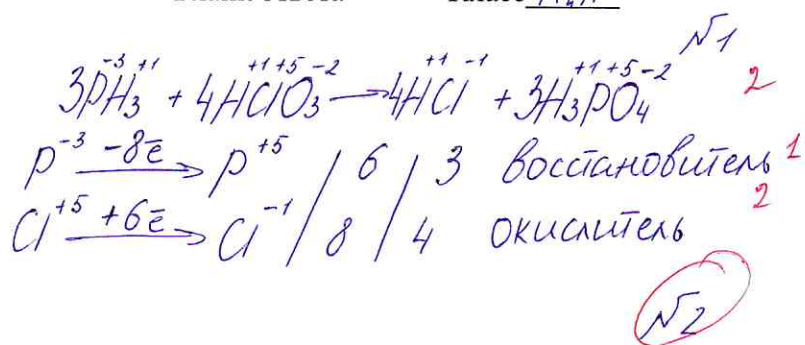 №1
3P⁻³H₃⁺¹ + 4H⁺¹Cl⁺⁵O₃⁻² → 4H⁺¹Cl⁻¹ + 3H₃⁺¹P⁺⁵O₄⁻² 2
P⁻³ −8ē → P⁺⁵ / 6 / 3 восстановитель 1
Cl⁺⁵ +6ē → Cl⁻¹ / 8 / 4 окислитель 2
№2